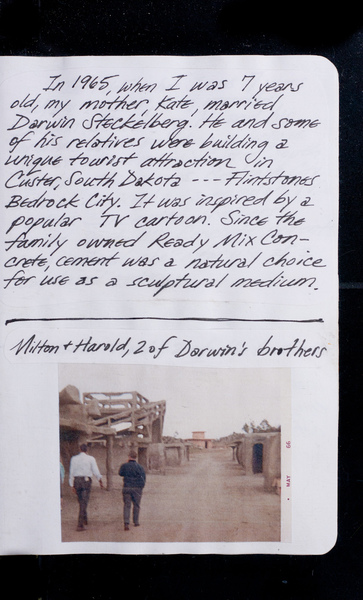 In 1965, when I was 7 years
old, my mother, Kate, married
Darwin Steckelberg. He and some
of his relatives were building a
unique tourist attraction in
Custer, South Dakota --- Flintstones
Bedrock City. It was inspired by a
popular TV cartoon. Since the
family owned Ready Mix Con-
crete, cement was a natural choice
for use as a sculptural medium.
Milton + Harold, 2 of Darwin's brothers
• MAY 66